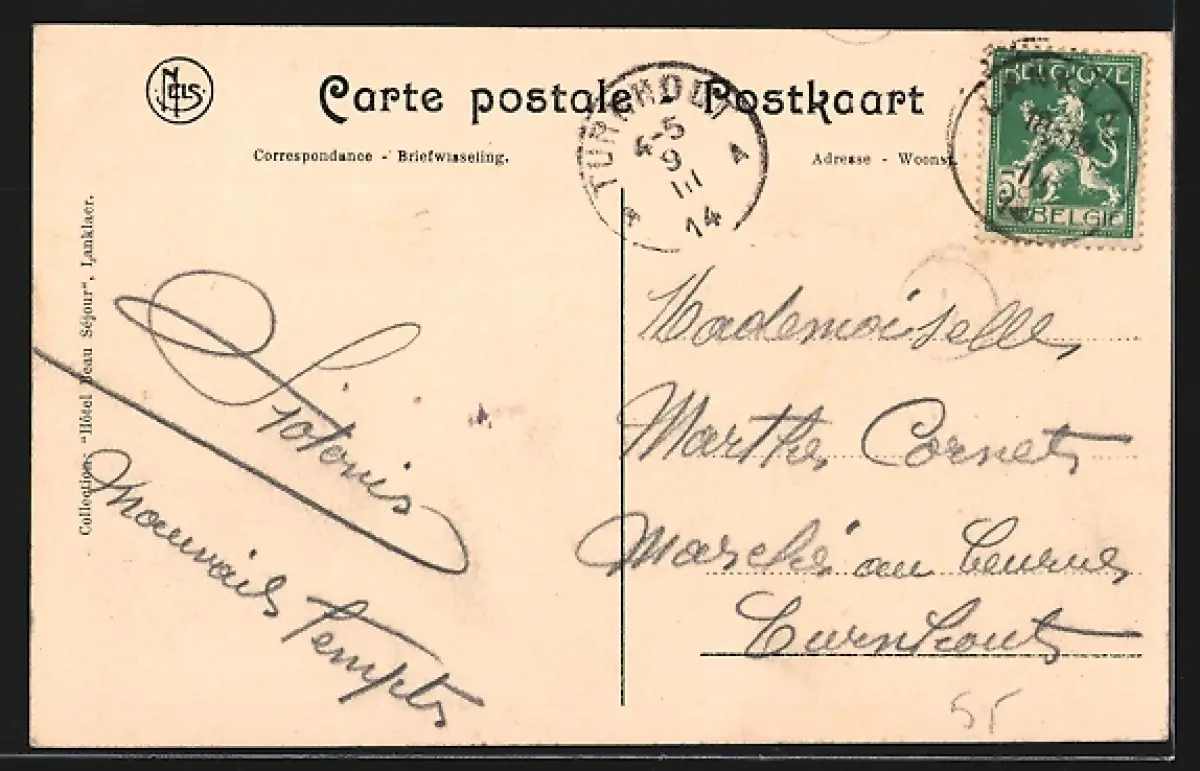 NELS
Carte postale - Postkaart
Correspondance - Briefwisseling.
Adresse - Woonst.
TURNHOUT
4-5
9
III
14
BELGIQUE
5c
BELGIE
Collection "Hôtel Beau Séjour", Lanklaer.
Mauvais Tempts
Mademoiselle
Marthe Cornet
Marché au Beurre
Turnhout